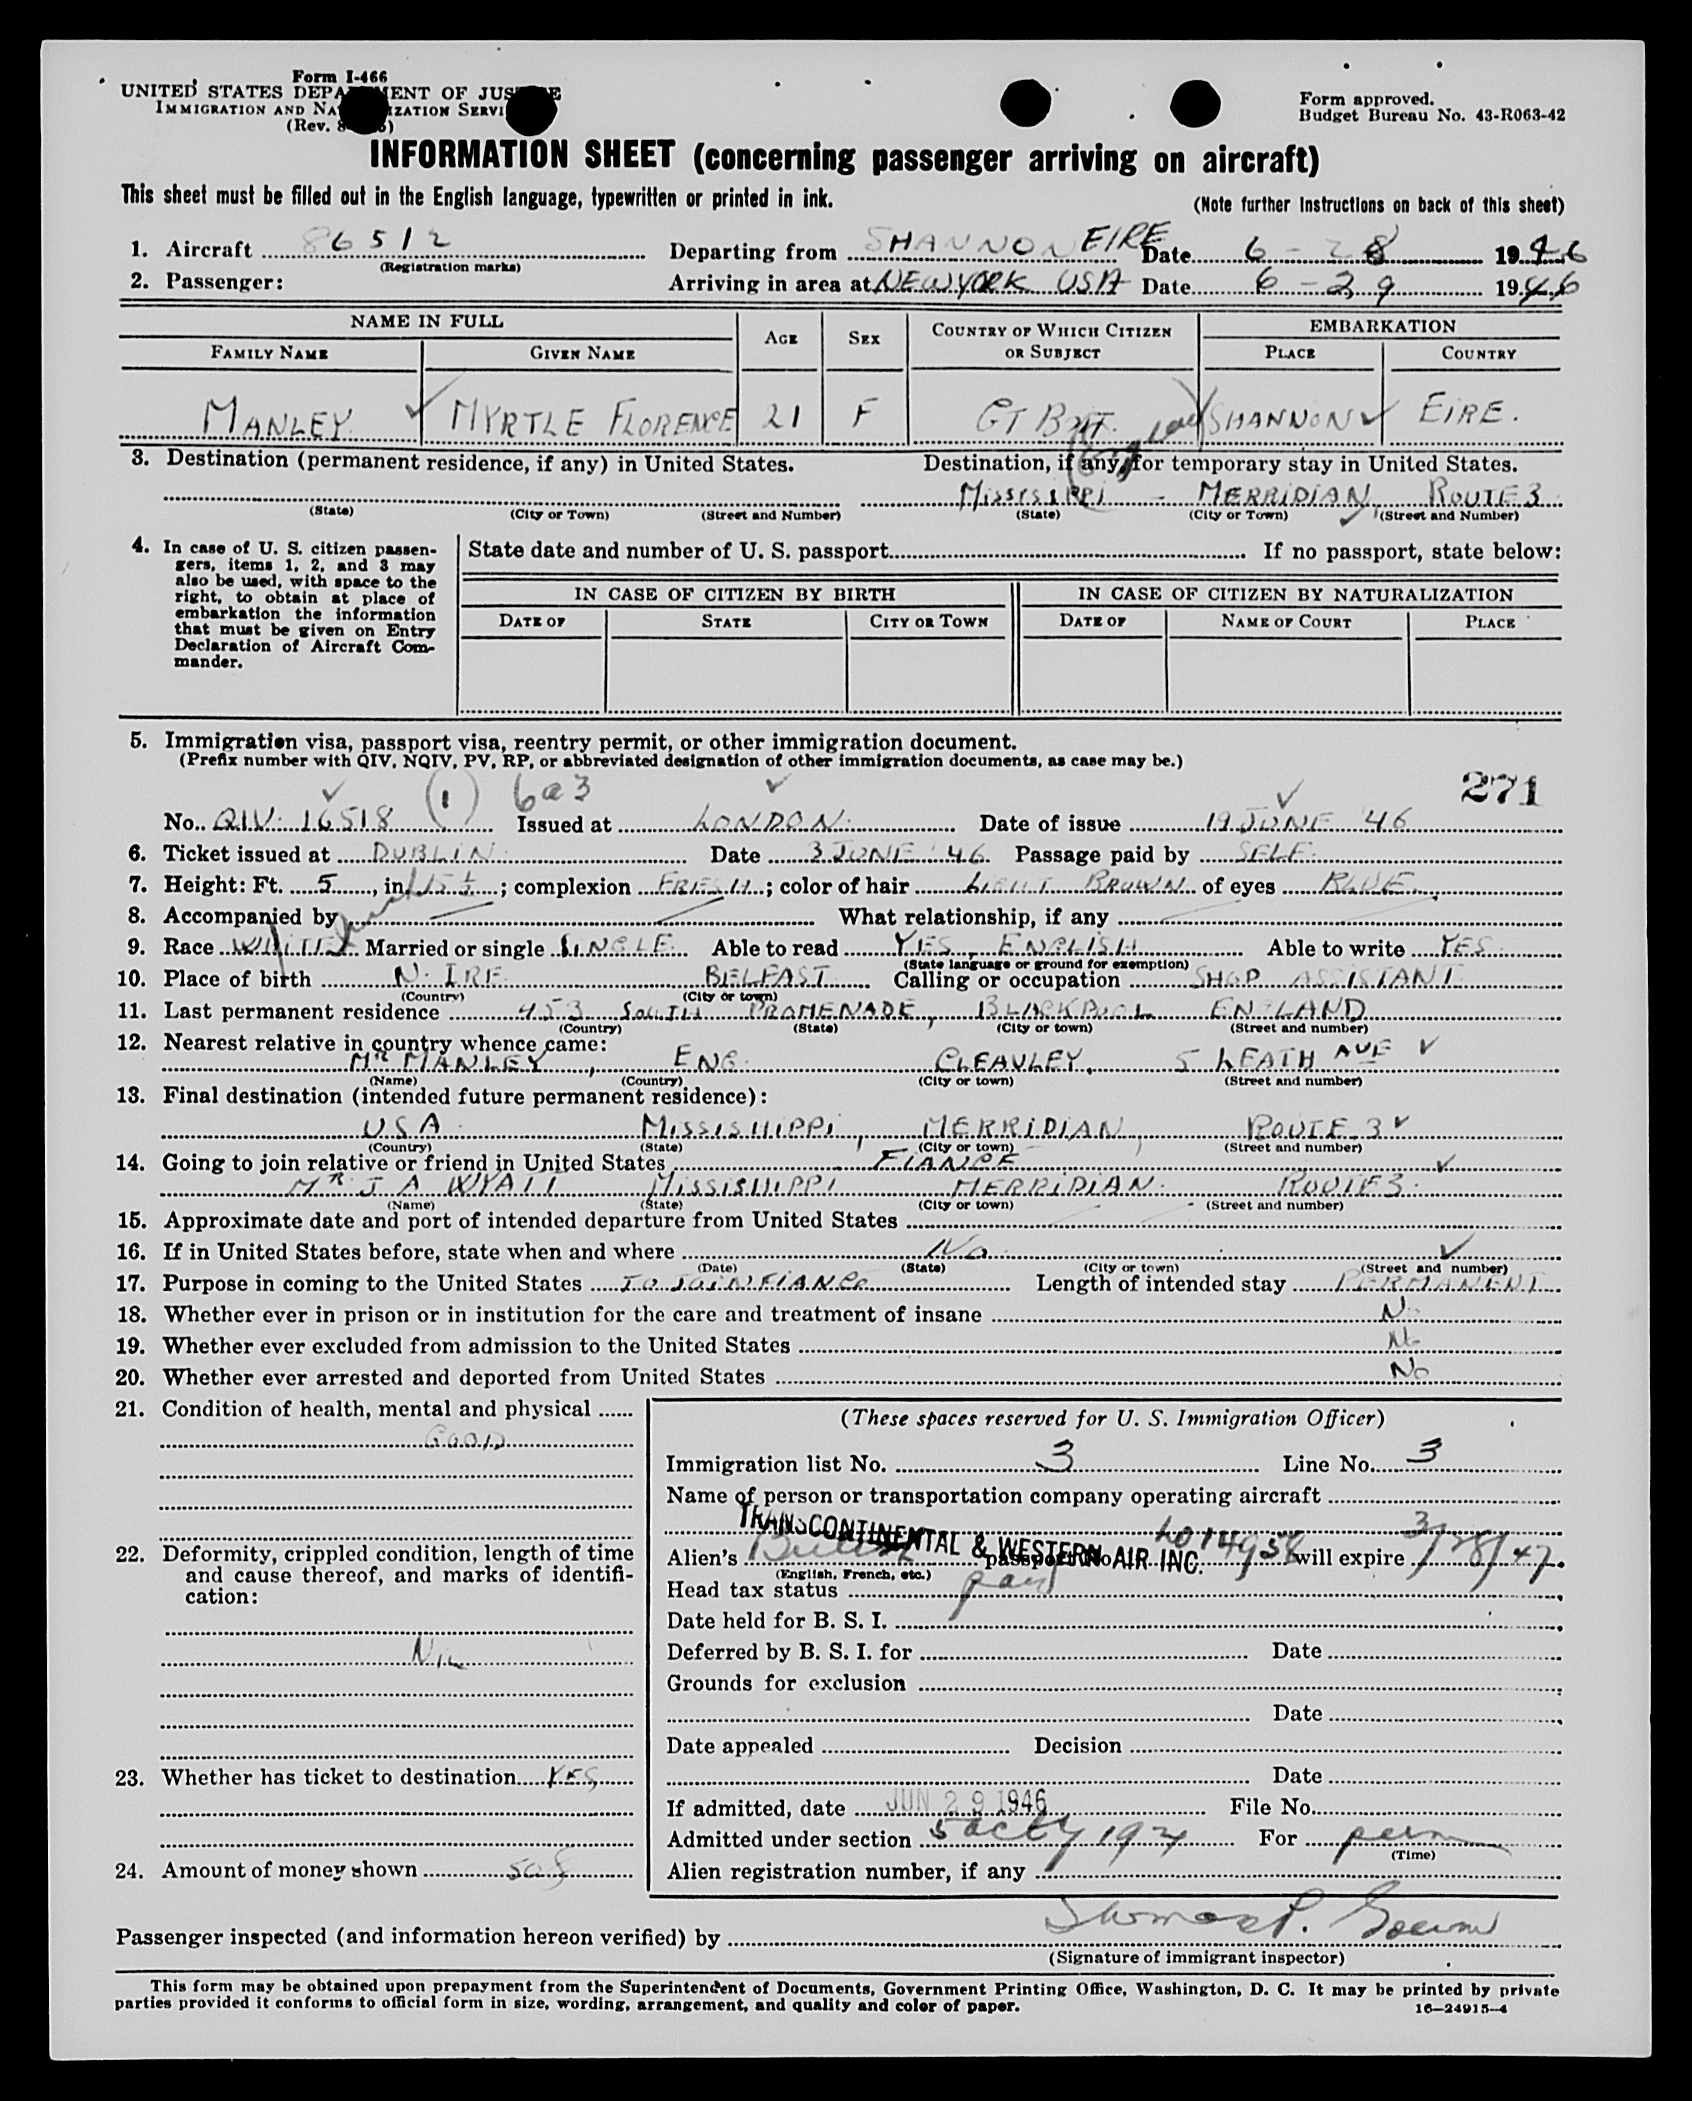 Form I-466
UNITED STATES DEPARTMENT OF JUSTICE
IMMIGRATION AND NATURALIZATION SERVICE
(Rev.
Form approved.
Budget Bureau No. 43-R063-42
INFORMATION SHEET (concerning passenger arriving on aircraft)
This sheet must be filled out in the English language, typewritten or printed in ink.
(Note further instructions on back of this sheet)
1. Aircraft 86512 Departing from SHANNON EIRE Date 6-28 1946
(Registration marks)
2. Passenger: Arriving in area at NEW YORK USA Date 6-29 1946
NAME IN FULL AGE SEX COUNTRY OF WHICH CITIZEN OR SUBJECT EMBARKATION
FAMILY NAME GIVEN NAME PLACE COUNTRY
MANLEY MYRTLE FLORENCE 21 F GT BRIT. SHANNON EIRE.
3. Destination (permanent residence, if any) in United States. Destination, if any, for temporary stay in United States.
MISSISSIPPI - MERRIDIAN ROUTE 3
(State) (City or Town) (Street and Number) (State) (City or Town) (Street and Number)
4. In case of U. S. citizen passen-
gers, items 1, 2, and 3 may
also be used, with space to the
right, to obtain at place of
embarkation the information
that must be given on Entry
Declaration of Aircraft Com-
mander.
State date and number of U. S. passport If no passport, state below:
IN CASE OF CITIZEN BY BIRTH IN CASE OF CITIZEN BY NATURALIZATION
DATE OF STATE CITY OR TOWN DATE OF NAME OF COURT PLACE
5. Immigration visa, passport visa, reentry permit, or other immigration document.
(Prefix number with QIV, NQIV, PV, RP, or abbreviated designation of other immigration documents, as case may be.)
(1) 6a3 271
No. QIV. 16518 Issued at LONDON. Date of issue 19 JUNE '46
6. Ticket issued at DUBLIN Date 3 JUNE '46. Passage paid by SELF.
7. Height: Ft. 5, in. 5½; complexion FRESH; color of hair LIGHT BROWN of eyes BLUE
8. Accompanied by What relationship, if any
9. Race WHITE Married or single SINGLE. Able to read YES, ENGLISH Able to write YES
(State language or ground for exemption)
10. Place of birth N. IRE. BELFAST Calling or occupation SHOP ASSISTANT
(Country) (City or town)
11. Last permanent residence 453 SOUTH PROMENADE, BLACKPOOL ENGLAND
(Country) (State) (City or town) (Street and number)
12. Nearest relative in country whence came:
MR MANLEY, ENG. CLEAVLEY, 5 LEATH AVE
(Name) (Country) (City or town) (Street and number)
13. Final destination (intended future permanent residence):
USA MISSISSIPPI, MERRIDIAN, ROUTE 3
(Country) (State) (City or town) (Street and number)
14. Going to join relative or friend in United States FIANCE
MR J A WYATT MISSISSIPPI MERRIDIAN. ROUTE 3.
(Name) (State) (City or town) (Street and number)
15. Approximate date and port of intended departure from United States
16. If in United States before, state when and where No
(Date) (State) (City or town) (Street and number)
17. Purpose in coming to the United States TO JOIN FIANCE Length of intended stay PERMANENT
18. Whether ever in prison or in institution for the care and treatment of insane No
19. Whether ever excluded from admission to the United States No
20. Whether ever arrested and deported from United States No
21. Condition of health, mental and physical
GOOD
22. Deformity, crippled condition, length of time
and cause thereof, and marks of identifi-
cation:
NIL
23. Whether has ticket to destination YES
24. Amount of money shown
(These spaces reserved for U. S. Immigration Officer)
Immigration list No. 3 Line No. 3
Name of person or transportation company operating aircraft
TRANSCONTINENTAL & WESTERN AIR INC.
Alien's British passport No. will expire 3/28/47
(English, French, etc.)
Head tax status paid
Date held for B. S. I.
Deferred by B. S. I. for Date
Grounds for exclusion
Date
Date appealed Decision
Date
If admitted, date JUN 29 1946 File No.
Admitted under section 5 act of 1924 For perm
(Time)
Alien registration number, if any
Passenger inspected (and information hereon verified) by Thomas P.
(Signature of immigrant inspector)
This form may be obtained upon prepayment from the Superintendent of Documents, Government Printing Office, Washington, D. C. It may be printed by private
parties provided it conforms to official form in size, wording, arrangement, and quality and color of paper.
16—24915-4